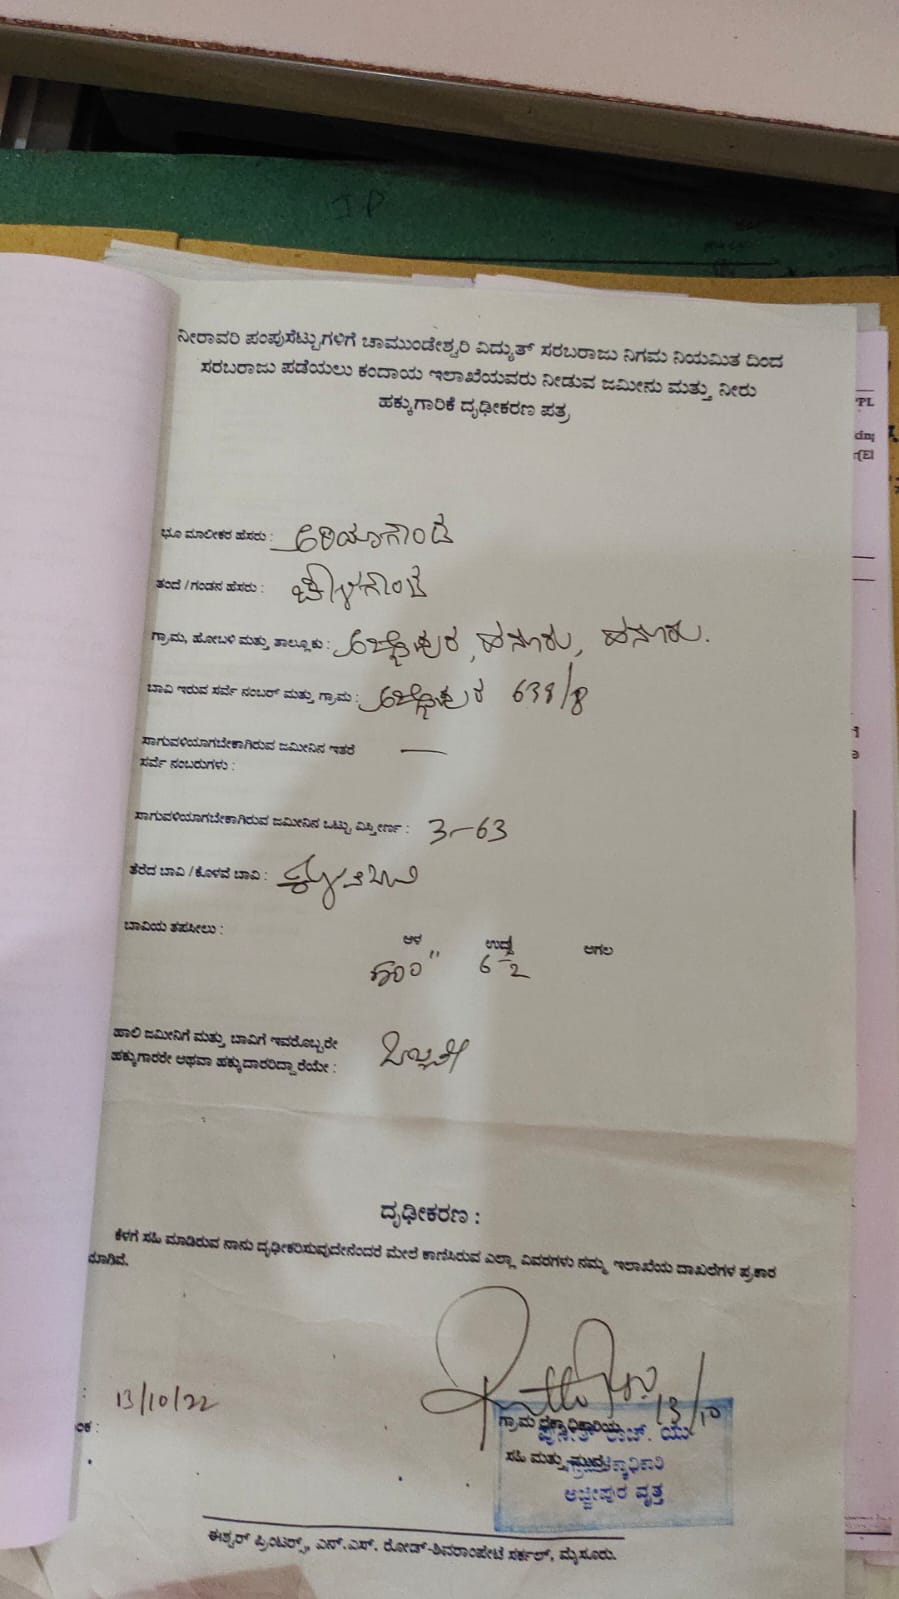 JP
ನೀರಾವರಿ ಪಂಪುಸೆಟ್ಟುಗಳಿಗೆ ಚಾಮುಂಡೇಶ್ವರಿ ವಿದ್ಯುತ್ ಸರಬರಾಜು ನಿಗಮ ನಿಯಮಿತ ದಿಂದ
ಸರಬರಾಜು ಪಡೆಯಲು ಕಂದಾಯ ಇಲಾಖೆಯವರು ನೀಡುವ ಜಮೀನು ಮತ್ತು ನೀರು
ಹಕ್ಕುಗಾರಿಕೆ ದೃಢೀಕರಣ ಪತ್ರ
ಭೂ ಮಾಲೀಕರ ಹೆಸರು :
ತಂದೆ / ಗಂಡನ ಹೆಸರು :
ಗ್ರಾಮ, ಹೋಬಳಿ ಮತ್ತು ತಾಲ್ಲೂಕು : ಅಜ್ಜೀಪುರ, ಹನೂರು, ಹನೂರು.
ಬಾವಿ ಇರುವ ಸರ್ವೆ ನಂಬರ್ ಮತ್ತು ಗ್ರಾಮ : ಅಜ್ಜೀಪುರ 638/8
ಸಾಗುವಳಿಯಾಗಬೇಕಾಗಿರುವ ಜಮೀನಿನ ಇತರೆ —
ಸರ್ವೆ ನಂಬರುಗಳು :
ಸಾಗುವಳಿಯಾಗಬೇಕಾಗಿರುವ ಜಮೀನಿನ ಒಟ್ಟು ವಿಸ್ತೀರ್ಣ : 3-63
ತೆರೆದ ಬಾವಿ / ಕೊಳವೆ ಬಾವಿ :
ಬಾವಿಯ ತಪಸೀಲು :
ಆಳ ಉದ್ದ ಅಗಲ
6-2
ಹಾಲಿ ಜಮೀನಿಗೆ ಮತ್ತು ಬಾವಿಗೆ ಇವರೊಬ್ಬರೇ
ಹಕ್ಕುಗಾರರೇ ಅಥವಾ ಹಕ್ಕುದಾರರಿದ್ದಾರೆಯೇ :
ದೃಢೀಕರಣ :
ಕೆಳಗೆ ಸಹಿ ಮಾಡಿರುವ ನಾನು ದೃಢೀಕರಿಸುವುದೇನೆಂದರೆ ಮೇಲೆ ಕಾಣಿಸಿರುವ ಎಲ್ಲಾ ವಿವರಗಳು ನಮ್ಮ ಇಲಾಖೆಯ ದಾಖಲೆಗಳ ಪ್ರಕಾರ
13/10/22
13/10
ಗ್ರಾಮ
ಸಹಿ ಮತ್ತು
ಅಜ್ಜೀಪುರ ವೃತ್ತ
ಈಶ್ವರ್ ಪ್ರಿಂಟರ್ಸ್, ಎನ್.ಎಸ್. ರೋಡ್-ಶಿವರಾಂಪೇಟೆ ಸರ್ಕಲ್, ಮೈಸೂರು.